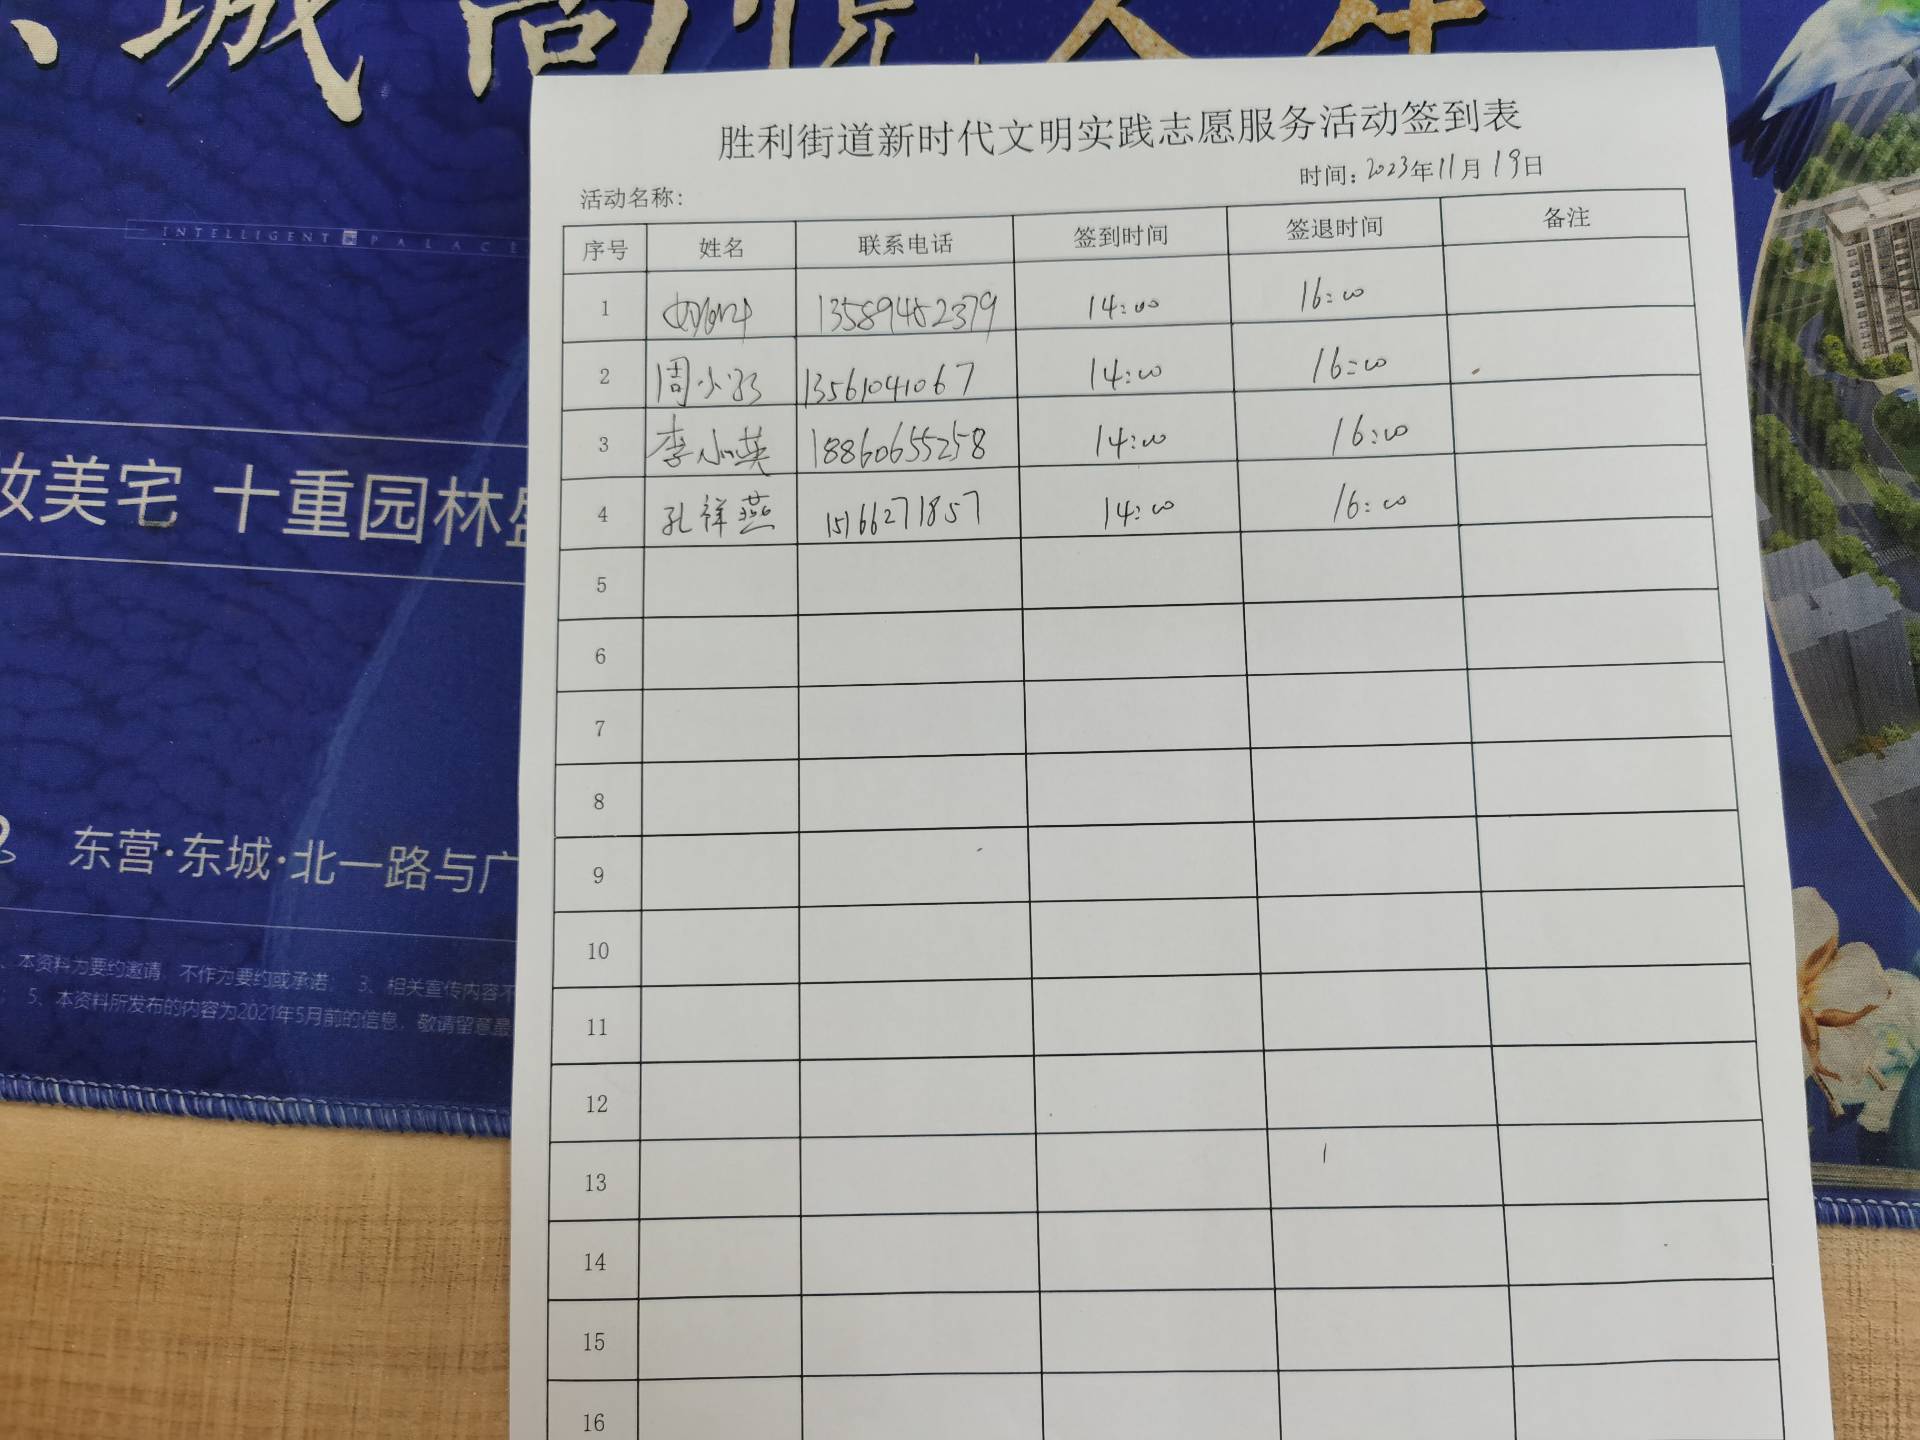 城
INTELLIGENT PALACE
妆美宅 十重园林盛
东营·东城·北一路与广
、本资料为要约邀请，不作为要约或承诺； 3、相关宣传内容不
； 5、本资料所发布的内容为2021年5月前的信息，敬请留意最
胜利街道新时代文明实践志愿服务活动签到表
时间：2023年11月19日
活动名称：
序号 姓名 联系电话 签到时间 签退时间 备注
1 13589452379 14:00 16:00
2 周小 13561041067 14:00 16:00
3 李小英 18860655258 14:00 16:00
4 孔祥燕 15166271857 14:00 16:00
5
6
7
8
9
10
11
12
13
14
15
16